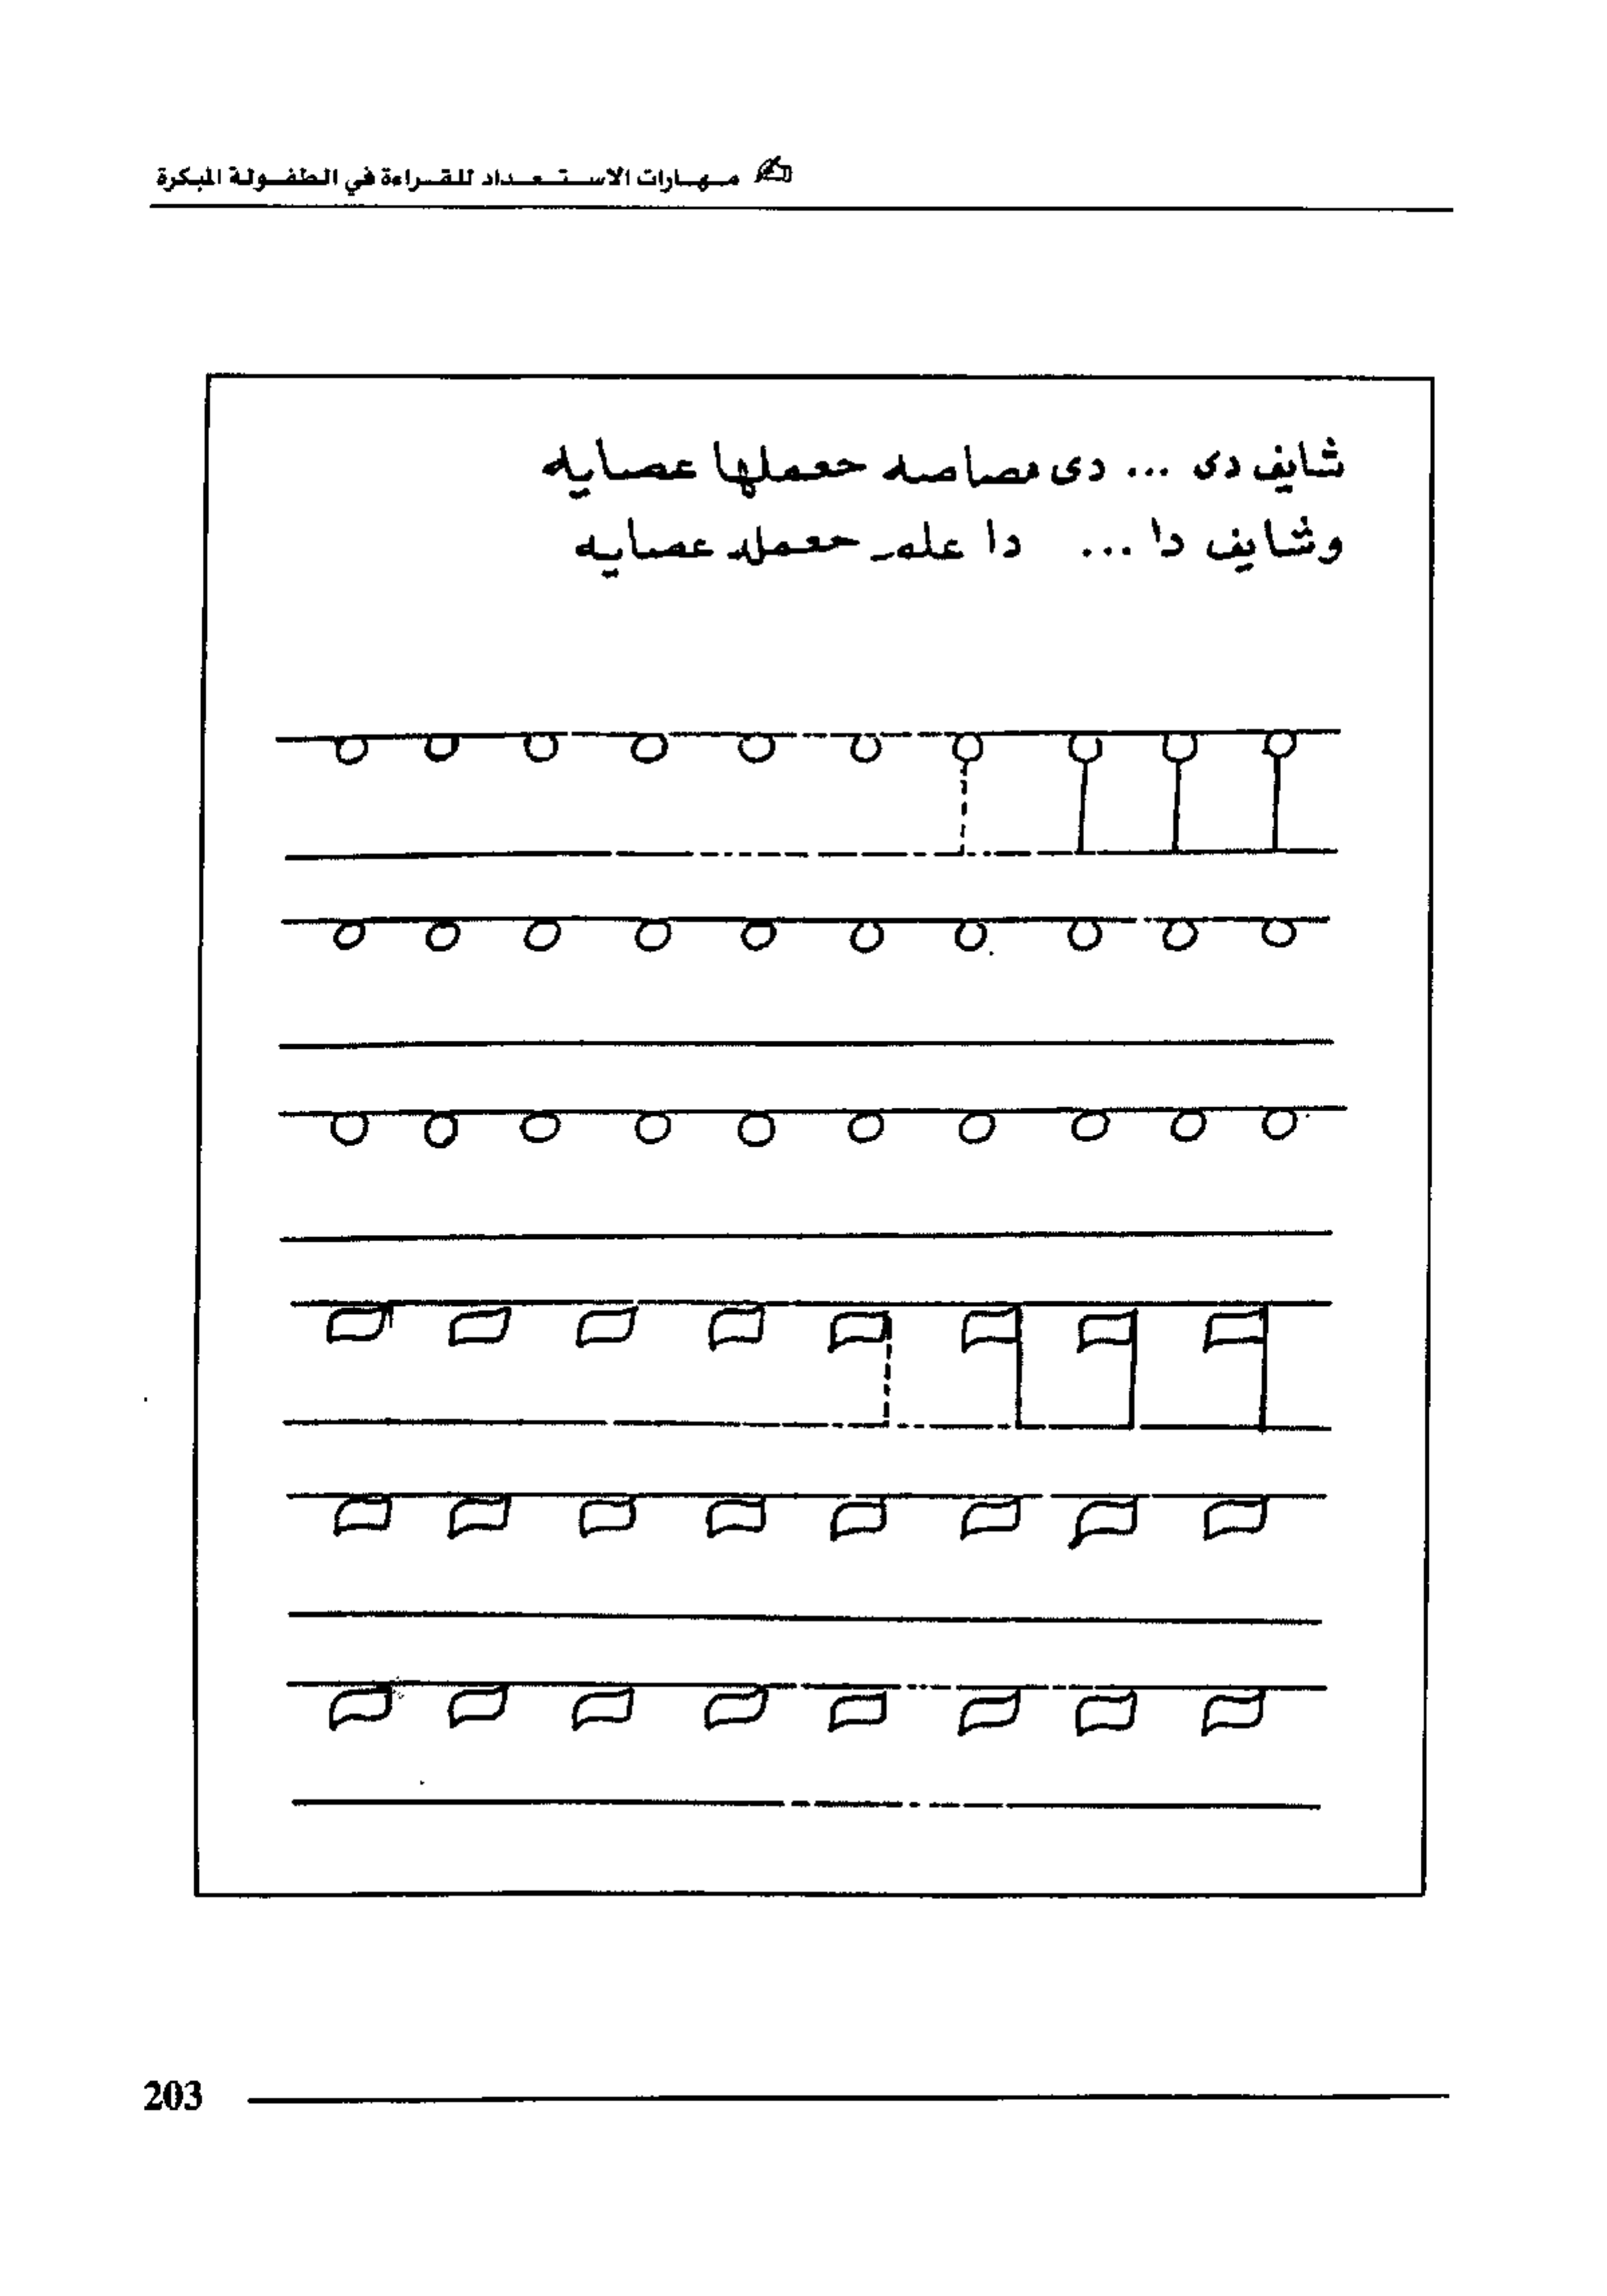 مهارات الاستعداد للقراءة في الطفولة المبكرة
شايف دى ... دى مصاصه حعملها عصايه
وشايف دا ... دا علم حعمله عصايه
203